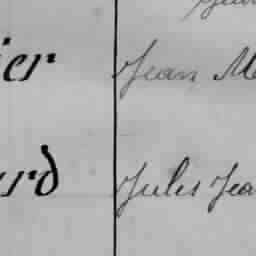 ier Jean M
urd Jules Jea